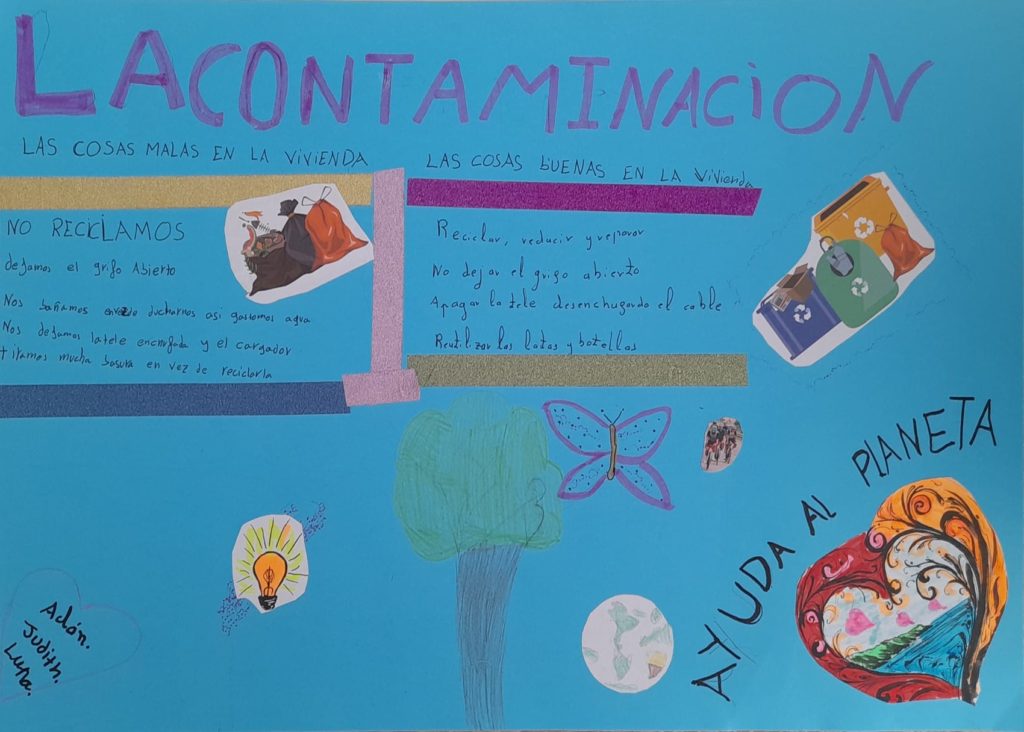 LA CONTAMINACiON
LAS COSAS MALAS EN LA ViVIENDA
NO RECICLAMOS
dejamos el grifo Abierto
Nos bañamos envezde ducharnos asi gastamos agua
Nos dejamos latele enchufada y el cargador
titamos mucha basura en vez de reciclarla
LAS COSAS bUENAS EN LA Vivienda
Reciclar, reducir y reparar
No dejar el grifo abierto
Apagar la tele desenchugando el cable
Reutilizar las latas y botellas
AYUDA AL PLANETA
Adón.
Judith.
Luna.